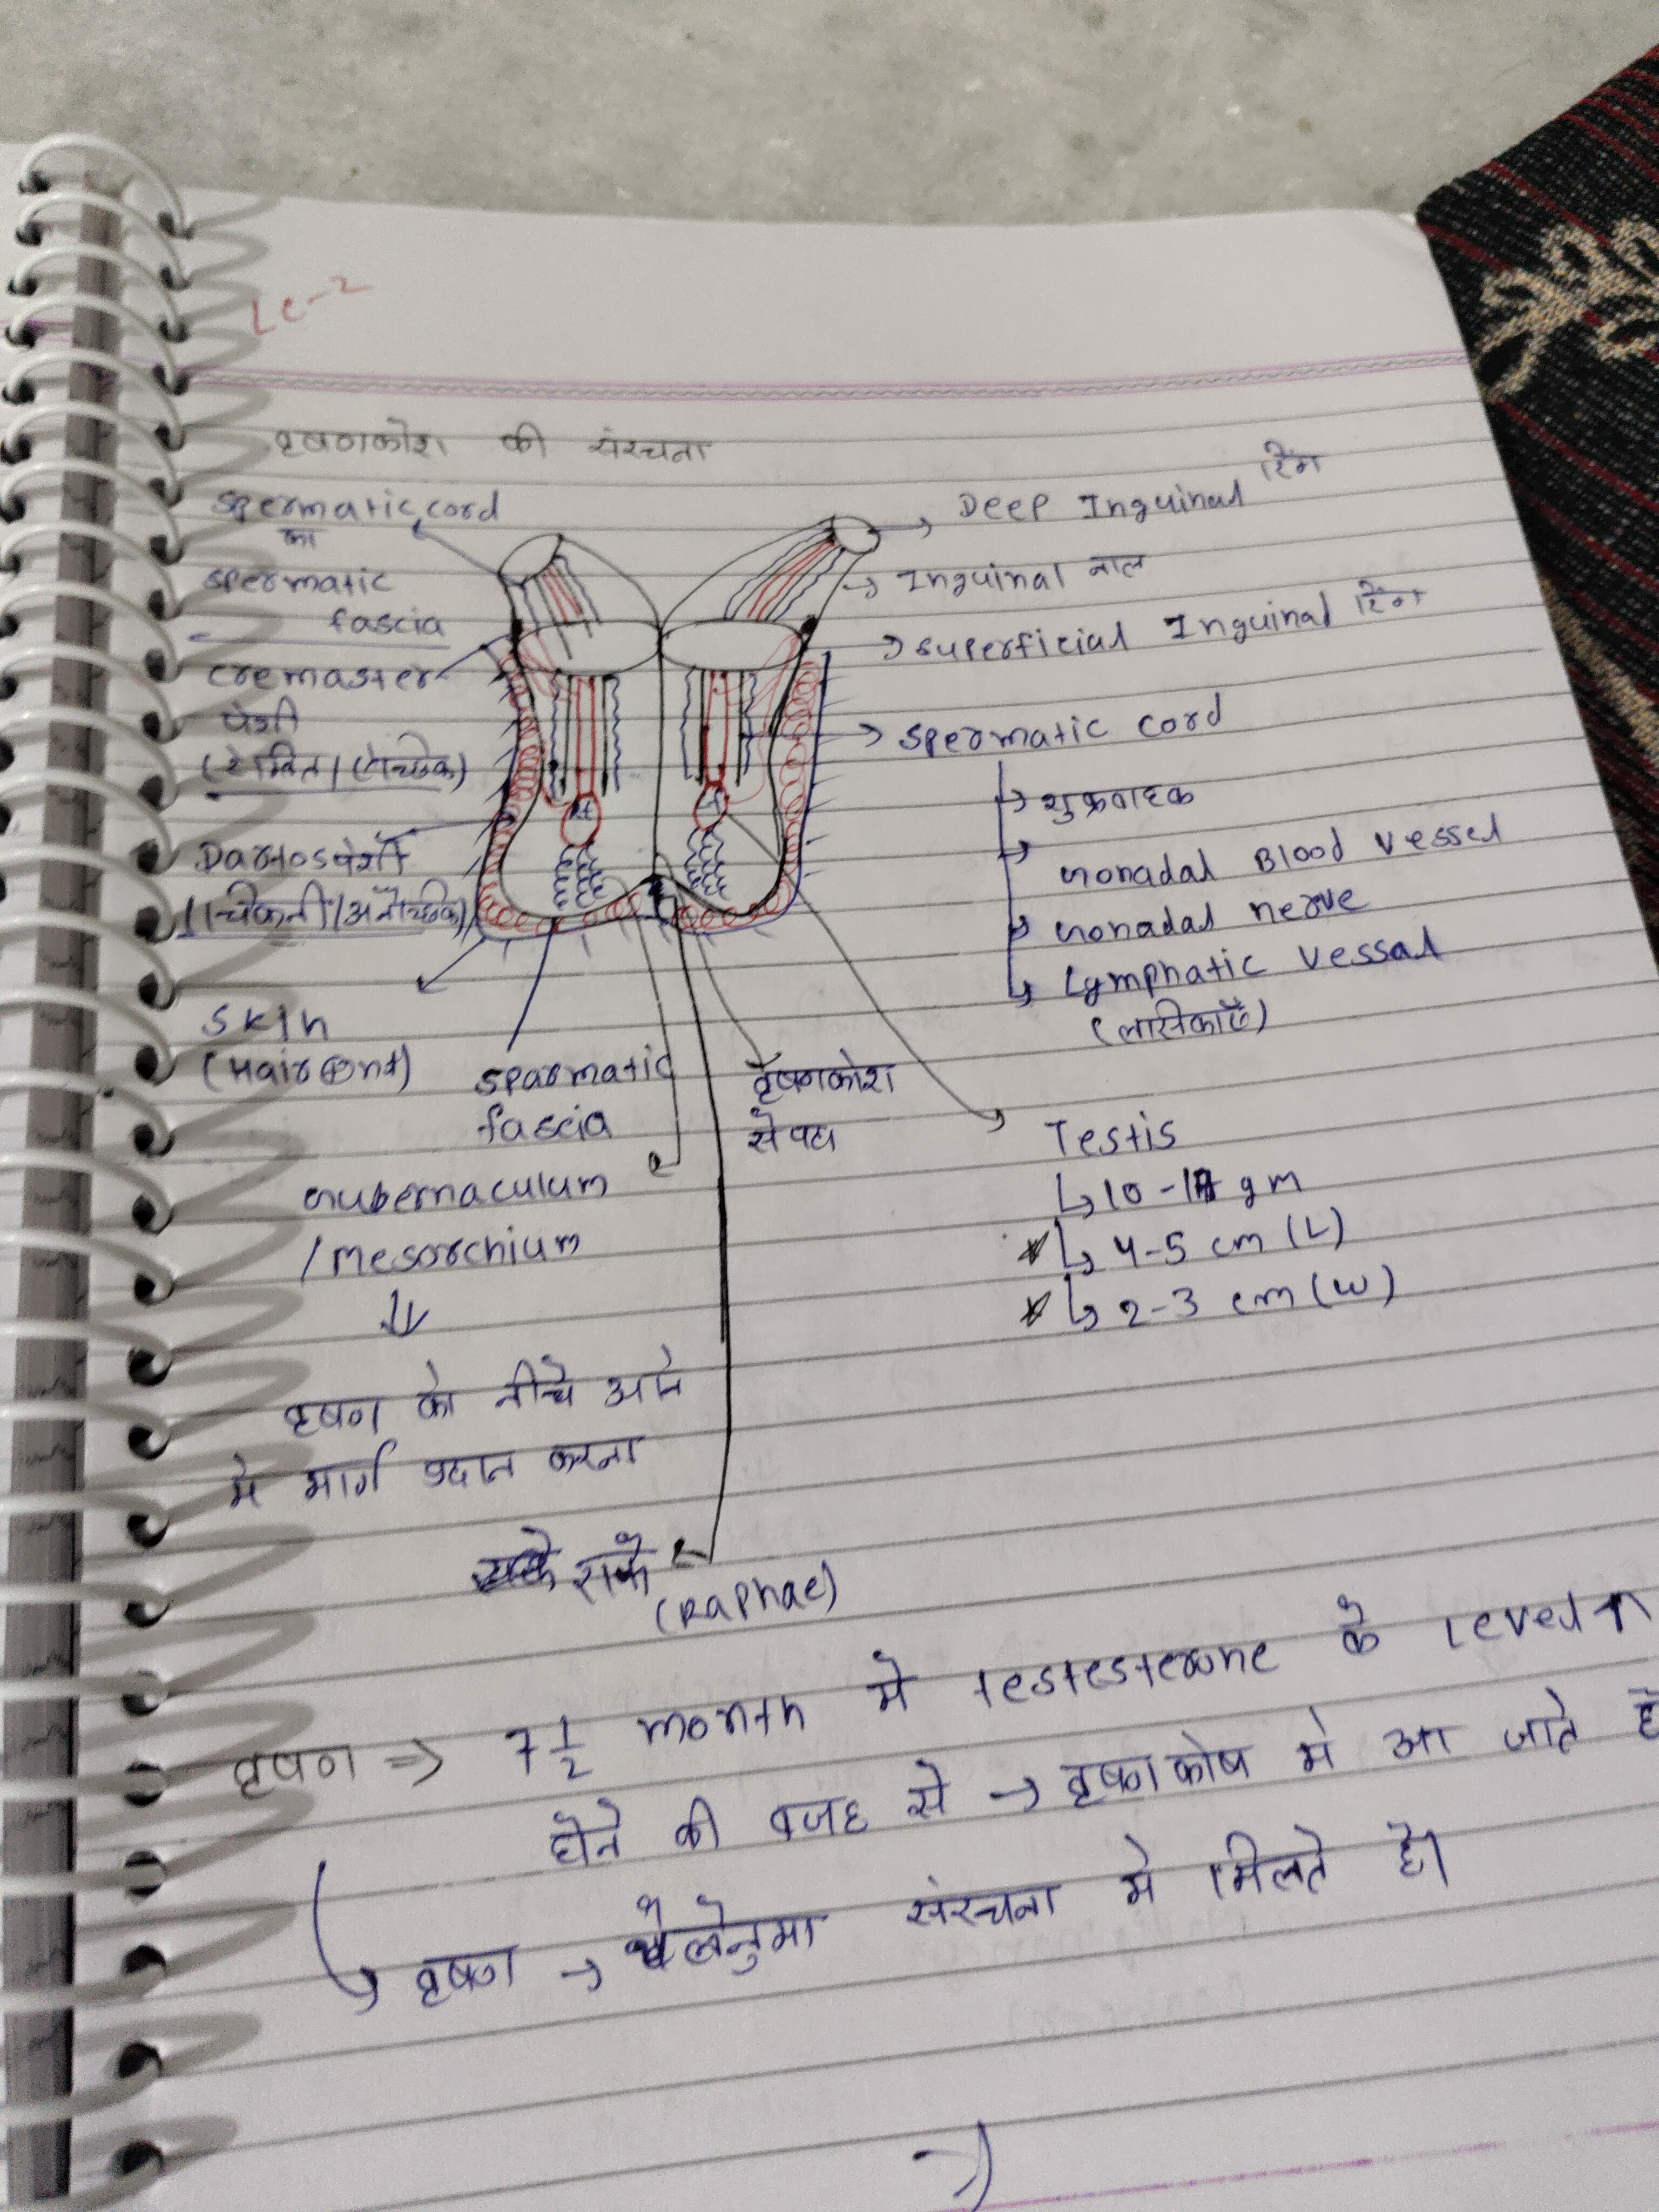 Lc-2
वृषणकोश की संरचना
spermatic cord
का
spermatic
fascia
cremaster
पेशी
(रेखित/ऐच्छिक)
Dartos पेशी
(चिकनी/अनैच्छिक)
skin
(Hair ⊕nt)
sparmatic
fascia
Gubernaculum
/mesorchium
वृषण को नीचे आने
मे मार्ग प्रदान करना
राफे
(Raphae)
वृषणकोश
सेपटा
Deep Inguinal रिंग
Inguinal नाल
superficial Inguinal रिंग
spermatic cord
शुक्रवाहक
Gonadal Blood vessel
Gonadal nerve
Lymphatic vessal
(लासिकाएँ)
Testis
4-5 cm (L)
2-3 cm (w)
वृषण => 7 1/2 month मे testesterone के level ↑
होने की वजह से → वृषणकोष मे आ जाते है
वृषण → थैलेनुमा संरचना मे मिलते है।
→